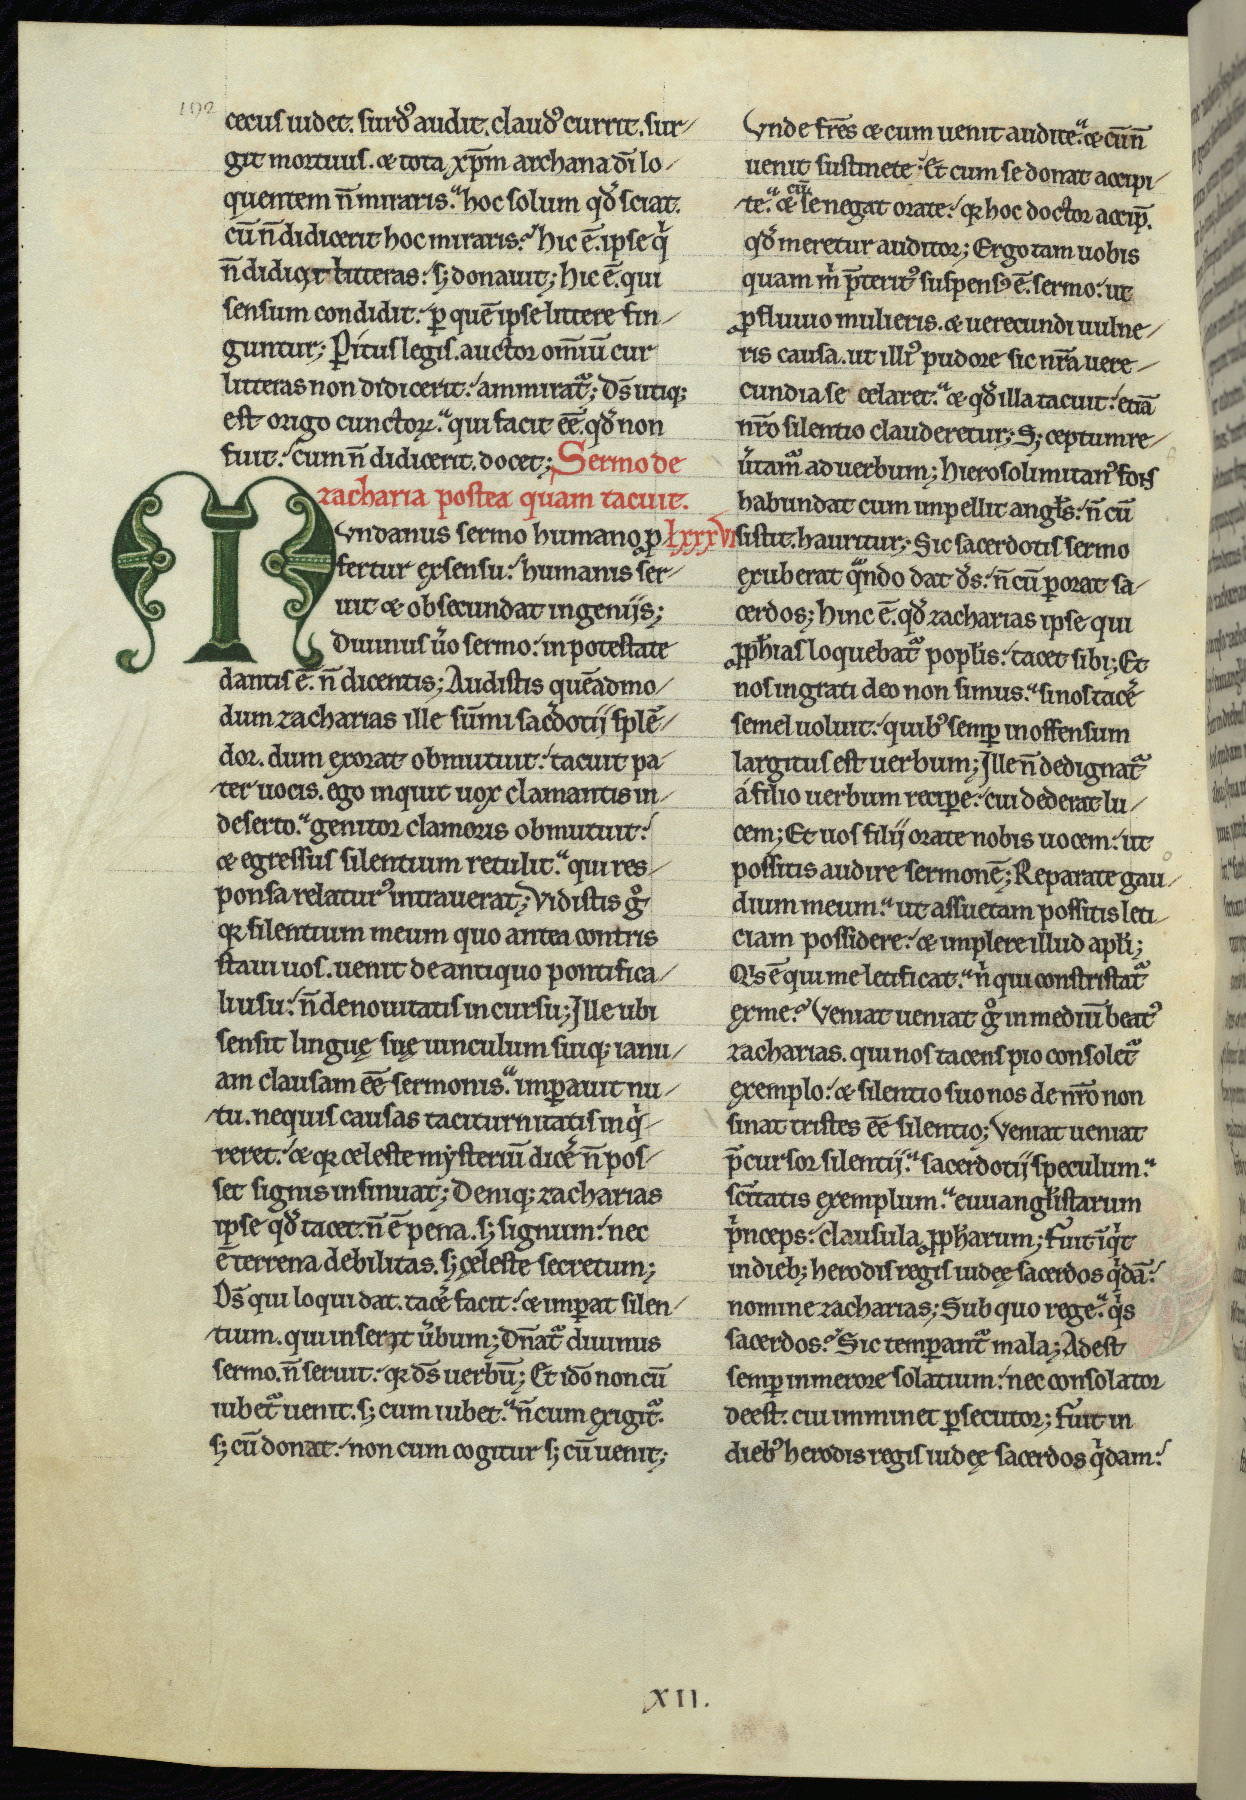 192
cęcus uidet. surdꝰ audit. claudꝰ currit. sur-
git mortuus. & tota xp̄m archana dī lo-
quentem n̄ miraris. hoc solum qđ sciat.
cū n̄ didicerit hoc miraris? hic ē. ipse q̇
n̄ didicit litteras: sꝫ donauit; hic ē. qui
sensum condidit: ꝑ quē ipse littere fin-
guntur; Peritus legis. auctor omīū cur
litteras non didicerit: ammirat᷑; Ds̄ utiqꝫ
est origo cunctoꝝ. qui facit eē. qđ non
fuit: cum n̄ didicerit. docet; Sermo de
zacharia postea quam tacuit.
Mundanus sermo humano ꝓ lxxxvi
fertur ex sensu: humanis ser-
uit & obsecundat ingenijs;
Diuinus ůo sermo: in potestate
dantis ē. n̄ dicentis; Audistis quēadmo-
dum zacharias ille sūmi sac̄dotij splē-
dor. dum exorat obmutuit: tacuit pa-
ter uocis. ego inquit uox clamantis in
deserto. genitor clamoris obmutuit:
& egressus silentium retulit. qui res-
ponsa relaturꝰ intrauerat; Vidistis g̊
qꝛ silentium meum quo antea contris
staui uos. uenit de antiquo pontifica-
li usu: n̄ de nouitatis incursu; Ille ubi
sensit linguę suę uinculum suiqꝫ ianu-
am clausam eē sermonis. imꝑauit nu-
tu. nequis causas taciturnitatis inq̇-
reret: & qꝛ celeste mẏsteriū dicē n̄ pos-
set signis insinuat; Deniqꝫ zacharias
ipse qđ tacet. n̄ ē pena. sꝫ signum: nec
ē terrena debilitas. sꝫ cęleste secretum;
Ds̄ qui loqui dat. tacē facit: & imꝑat silen-
tium. qui inserit ůbum; Dn̄at᷑ diuinus
sermo. n̄ seruit: qꝛ ds̄ uerbū; Et idō non cū
iubet᷑ uenit. sꝫ cum iubet. n̄ cum exigit᷑.
sꝫ cū donat: non cum cogitur sꝫ cū uenit;
Vnde fr̄es & cum uenit audite. & cū n̄
uenit sustinete: Et cum se donat accipi-
te. & cū se negat orate: qꝛ hoc doctor accip̄.
qđ meretur auditor; Ergo tam uobis
quam m̊ p̄teritꝰ suspensꝰ ē. sermo: ut
ꝓfluuio mulieris. & uerecundi uulne-
ris causa. ut illiꝰ pudore sic nr̄a uere-
cundia se celaret. & qđ illa tacuit: etiā
nr̄o silentio clauderetur; Sꝫ ceptum re-
ůtam᷑ ad uerbum; hierosolimitanꝰ fons
habundat cum impellit angl̄s: n̄ cū
sistit. hauritur; Sic sacerdotis sermo
exuberat qᷓndo dat ds̄: n̄ cū ꝑorat sa-
cerdos; hinc ē. qđ zacharias ipse qui
ꝓph̄ias loquebat᷑ popl̄is: tacet sibi; Et
nos ingrati deo non simus. si nos tacē
semel uoluit: quibꝰ semꝑ inoffensum
largitus est uerbum; Ille n̄ dedignat᷑
á filio uerbum reciꝑe: cui dederat lu-
cem; Et uos filij orate nobis uocem: ut
possitis audire sermonē; Reparate gau-
dium meum. ut assuetam possitis leti-
ciam possidere: & implere illud apl̄i;
Qis ē qui me letificat. n̊ qui constristat᷑
ex me? Veniat ueniat g̊ in mediū beatꝰ
zacharias. qui nos tacens pio consolet᷑
exemplo: & silentio suo nos de nr̄o non
sinat tristes eē silentio; Veniat ueniat
p̄cursor silentij. sacerdotij speculum.
sc̄itatis exemplum. euuangl̄istarum
p̊nceps: clausula ꝓph̄arum; Fuit īq̇t
in diebꝫ herodis regis iudeę sacerdos q̇dā:
nomine zacharias; Sub quo rege. q̇s
sacerdos? Sic temꝑant᷑ mala; Adest
semꝑ in merore solatium: nec consolator
deest. cui imminet ꝑsecutor; Fuit in
diebꝰ herodis regis iudeę sacerdos q̇dam:
XII.